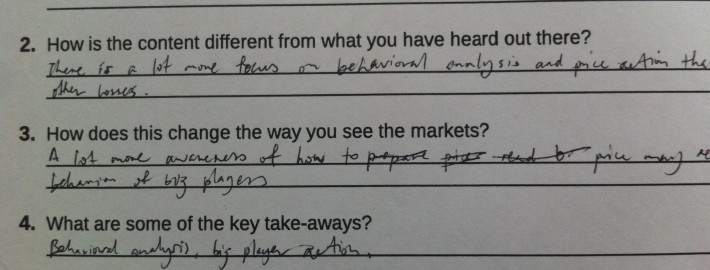 2. How is the content different from what you have heard out there?
There is a lot more focus on behavioral analysis and price action tha
other
3. How does this change the way you see the markets?
A lot more awareness of how to prepare price read b price may re
behavior of big players
4. What are some of the key take-aways?
Behavioral analysis, big player action.